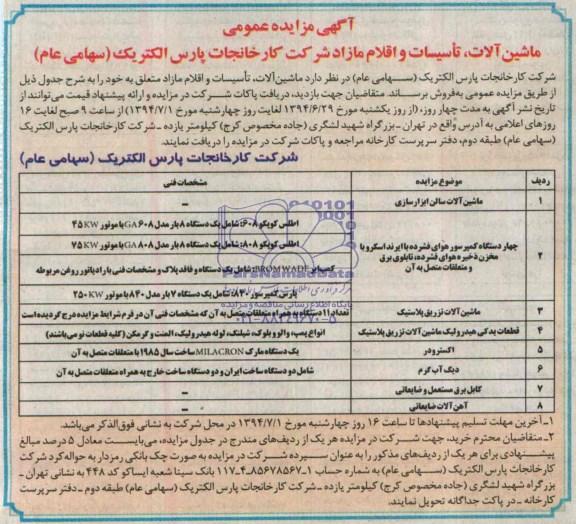 آگهی مزایده عمومی
ماشین آلات، تأسیسات و اقلام مازاد شرکت کارخانجات پارس الکتریک (سهامی عام)
شرکت کارخانجات پارس الکتریک (سـهامی عام) در نظر دارد ماشین‌آلات، تأسیسات و اقلام مازاد متعلق به خود را به شرح جدول ذیل
از طریق مزایده عمومی به‌فروش برساند. متقاضیان جهت بازدید، دریافت پاکات شرکت در مزایده و ارائه پیشنهاد قیمت می‌توانند از
تاریخ نشر آگهی به مدت چهار روز، (از روز یکشنبه مورخ ۱۳۹۴/۶/۲۹ لغایت روز چهارشنبه مورخ ۱۳۹۴/۷/۱) از ساعت ۹ صبح لغایت ۱۶
روزهای اعلامی به آدرس واقع در تهران ـ بزرگراه شهید لشگری (جاده مخصوص کرج) کیلومتر یازده ـ شرکت کارخانجات پارس الکتریک
(سهامی عام) طبقه دوم، دفتر سرپرست کارخانه مراجعه و پاکات شرکت در مزایده را دریافت نمایند.
شرکت کارخانجات پارس الکتریک (سهامی عام)
ردیف موضوع مزایده مشخصات فنی
۱ ماشین آلات سالن ابزارسازی ـ
۲ چهار دستگاه کمپرسور هوای فشرده با ایرند اسکرو با
مخزن ذخیره هوای فشرده، تابلوی برق
و متعلقات متصل به آن
اطلس کوپکو ۶۰۸: شامل یک دستگاه ۸ بار مدل GA۶۰۸ با موتور ۴۵KW
اطلس کوپکو ۸۰۸: شامل یک دستگاه ۸ بار مدل GA۸۰۸ با موتور ۷۵KW
کمپایر BROMWADE: شامل یک دستگاه و فاقد پلاک و مشخصات فنی با رادیاتور روغن مربوطه
پارس کمپرسور ۸۴۰: شامل یک دستگاه ۷ بار مدل ۸۴۰ با موتور ۲۵۰KW
۳ ماشین آلات تزریق پلاستیک تعداد ۱۱ دستگاه به همراه متعلقات متصل به آن که مشخصات فنی آن در فرم شرایط مزایده درج گردیده است
۴ قطعات یدکی هیدرولیک ماشین آلات تزریق پلاستیک انواع پمپ، والو و بلوک، شیلنگ، لوله هیدرولیک، المنت و گرمکن (کلیه قطعات نو می‌باشند)
۵ اکسترودر یک دستگاه مارک MILACRON ساخت سال ۱۹۸۵ با متعلقات متصل به آن
۶ دیگ آب گرم شامل دو دستگاه ساخت ایران و دو دستگاه ساخت خارج به همراه متعلقات متصل به آن
۷ کابل برق مستعمل و ضایعاتی ـ
۸ آهن آلات ضایعاتی ـ
۱ـ آخرین مهلت تسلیم پیشنهادها تا ساعت ۱۶ روز چهارشنبه مورخ ۱۳۹۴/۷/۱ در محل شرکت به نشانی فوق‌الذکر می‌باشد.
۲ـ متقاضیان محترم خرید، جهت شرکت در مزایده هر یک از ردیف‌های مندرج در جدول مزایده، می‌بایست معادل ۵ درصد مبالغ
پیشـنهادی برای هر یک از ردیف‌های مذکور را به عنوان سـپرده شـرکت در مزایده به صورت چک بانکی رمزدار به حواله‌کرد شرکت
کارخانجات پارس الکتریک (سـهامی عام) به شماره حساب ۱ـ۸۵۶۷۸۵۶۷ـ۴ـ۱۱۷ بانک سینا شعبه ایساکو کد ۴۴۸ به نشانی تهران ـ
بزرگراه شهید لشگری (جاده مخصوص کرج) کیلومتر یازده ـ شرکت کارخانجات پارس الکتریک (سهامی عام) طبقه دوم ـ دفتر سرپرست
کارخانه ـ در پاکت جداگانه تحویل نمایند.
ParsNamadData
پایگاه اطلاع رسانی مناقصه و مزایده
۰۲۱-۸۸۳۴۹۶۷۰-۵